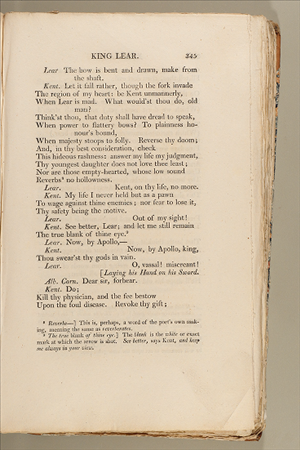 KING LEAR. 345
Lear The bow is bent and drawn, make from
the shaft.
Kent. Let it fall rather, though the fork invade
The region of my heart: be Kent unmannerly,
When Lear is mad. What would'st thou do, old
man?
Think'st thou, that duty shall have dread to speak,
When power to flattery bows? To plainness ho-
nour's bound,
When majesty stoops to folly. Reverse thy doom;
And, in thy best consideration, check
This hideous rashness: answer my life my judgment,
Thy youngest daughter does not love thee least;
Nor are those empty-hearted, whose low sound
Reverbs⁸ no hollowness.
Lear. Kent, on thy life, no more.
Kent. My life I never held but as a pawn
To wage against thine enemies; nor fear to lose it,
Thy safety being the motive.
Lear. Out of my sight!
Kent. See better, Lear; and let me still remain
The true blank of thine eye.⁹
Lear. Now, by Apollo,—
Kent. Now, by Apollo, king,
Thou swear'st thy gods in vain.
Lear. O, vassal! miscreant!
[Laying his Hand on his Sword.
Alb. Corn. Dear sir, forbear.
Kent. Do;
Kill thy physician, and the fee bestow
Upon the foul disease. Revoke thy gift;
⁸ Reverbs—] This is, perhaps, a word of the poet's own mak-
ing, meaning the same as reverberates.
⁹ The true blank of thine eye.] The blank is the white or exact
mark at which the arrow is shot. See better, says Kent, and keep
me always in your view.